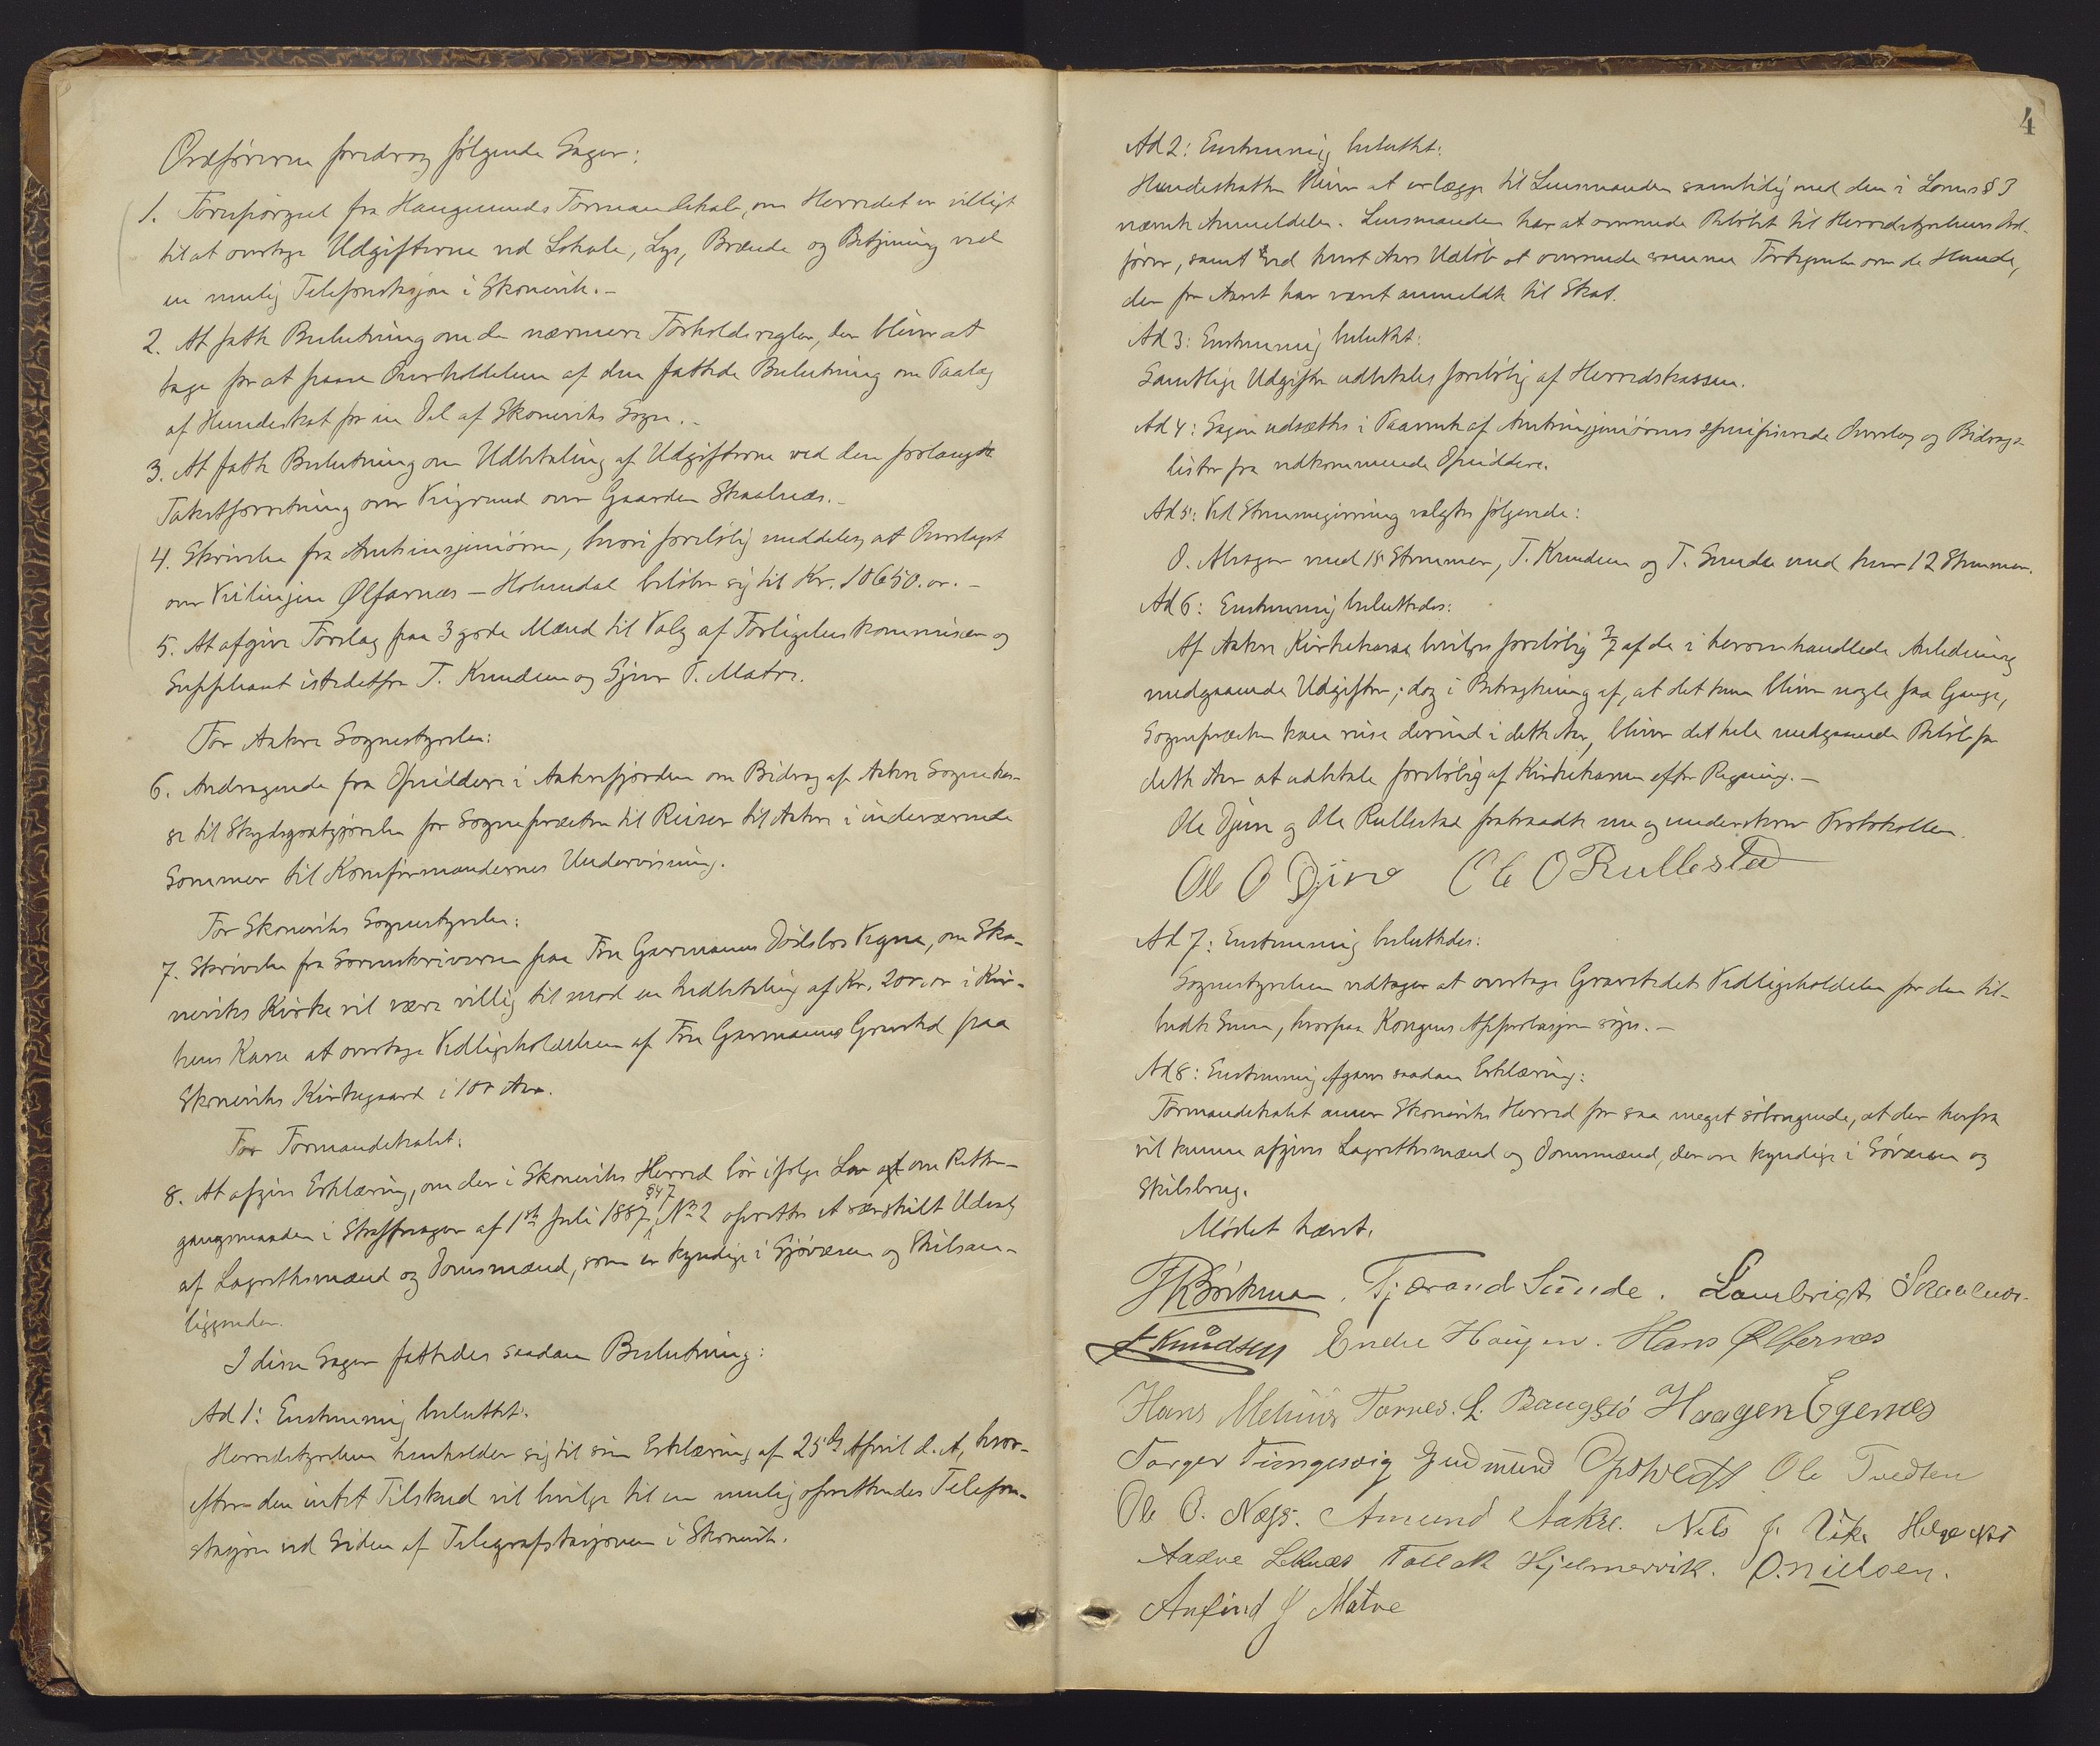 Ordføreren foredrog følgende Sager:
1. Forespørgsel fra Haugesunds Formandskab, om Herredet er villigt
til at overtage Udgifterne ved Lokale, Lys, Brænde og Betjening ved
en mulig Telefonstasjon i Skonevik.-
2. At fatte Beslutning om de nærmere Forholdsregler, der bliver at
tage for at paase Overholdelsen af den fattede Beslutning om Paalæg
af Hundeskat for en Del af Skoneviks Sogn.-
3. At fatte Beslutning om Udbetaling af Udgifterne ved den forlangte
Takstforretning over Veigrund over Gaarden Skaalnæs.-
4. Skrivelse fra Amtsinsjeniøren, hvori foreløbig meddeles, at Overslaget
over Veilinjen Ølfarnæs - Holmedal beløber sig til Kr. 10650.00.-
5. At afgive Forslag paa 3 gode Mænd til Valg af Forligelseskommissær og
Suppleant istedetfor T. Knudsen og Sjur T. Matre.
For Aakre Sognestyrelse:
6. Andragende fra Opsiddere i Aakrefjorden om Bidrag af Aakre Sognekas-
se til Skydsgodtgjørelse for Sognepræsten til Reiser til Aakre i indeværende
Sommer til Konfirmandernes Undervisning.
For Skoneviks Sognestyrelse:
7. Skrivelse fra Sorenskriveren paa Fru Garmanns Dødsbos Vegne, om Sko-
neviks Kirke vil være villig til mod en Indbetaling af Kr. 200,00 i Kir-
kens Kasse at overtage Vedligeholdelsen af Fru Garmanns Gravsted paa
Skoneviks Kirkegaard i 100 Aar.
For Formandskabet:
8. At afgive Erklæring, om der i Skoneviks Herred bør ifølge Lov om Retter-
gangsmaaden i Straffesager af 1ste Juli 1887, §47 No 2 oprettes et særskilt Udvalg
af Lagrettesmænd og Domsmænd, som er kyndige i Sjøvæsen og Skibsan-
liggender.
I disse Sager fattedes saadan Beslutning:
Ad 1: Enstemmig besluttet:
Herredstyrelsen henholder sig til sin Erklæring af 25de April d. A, hvor-
efter den intet Tilskud vil bevilge til en mulig oprettendes Telefon-
stasjon ved Siden af Telegrafstasjonen i Skonevik.
4
Ad 2: Enstemmig besluttet:
Hundeskatten bliver at erlægge til Lensmanden samtidig med den i Lovens § 3
nævnte Anmeldelse. Lensmanden har at oversende Beløbet til Herredstyrelsens Ord-
fører, samt ved hvert Aars Udløb at oversende samme Fortegnelse over de Hunde,
der for Aaret har været anmeldt til Skat.
Ad 3: Enstemmig besluttet:
Samtlige Udgifter udbetales foreløbig af Herredskassen.
Ad 4: Sagen udsættes i Paavente af Amtsinsjeniørens spesifiserede Overslag og Bidrags-
lister fra vedkommende Opsiddere.
Ad 5: Ved Stemmegivning valgtes følgende:
O. Alsager med 15 Stemmer, T. Knudsen og T. Sunde med hver 12 Stemmer.
Ad 6: Enstemmig besluttedes:
Af Aakre Kirkekasse bevilges foreløbig 2/7 af de i heromhandlede Anledning
medgaaende Udgifter; dog i Betragtning af, at det kun bliver nogle faa Gange,
Sognepræsten kan reise derind i dette Aar, bliver det hele medgaaende Beløb for
dette Aar at udbetale foreløbig af Kirkekassen efter Regning.-
Ole Djuve og Ole Rullestad fratraadte nu og underskrev Protokollen.
Ole O Djuve Ole O Rullestad
Ad 7: Enstemmig besluttedes:
Sognestyrelsen vedtager at overtage Gravstedets Vedligeholdelse for den til-
budte Sum, hvorpaa Kongens Approbasjon søges.-
Ad 8: Enstemmig afgaves saadan Erklæring:
Formandskabet anser Skoneviks Herred for saa meget søbrugende, at der herfra
vil kunne afgives Lagrettesmænd og Domsmænd, der ere kyndige i Søvæsen og
Skibsbrug.
Mødet hævet.
Tjærand Sunde. Lambrigt Skaalnes.
T Knudsen Endre Haugen. Hans Ølfernæs
Hans Mehus Tornes. L. Baugstø Haagen Egenæs
Torger Tungesvig Gudmund Opstvedt Ole Tvedten
Ole O. Næss. Amund Aakre. Nils J. Vike Helge
Aadne Leknæs Tollak Hjelmervik. O. Nielsen.
Anfind J Matre